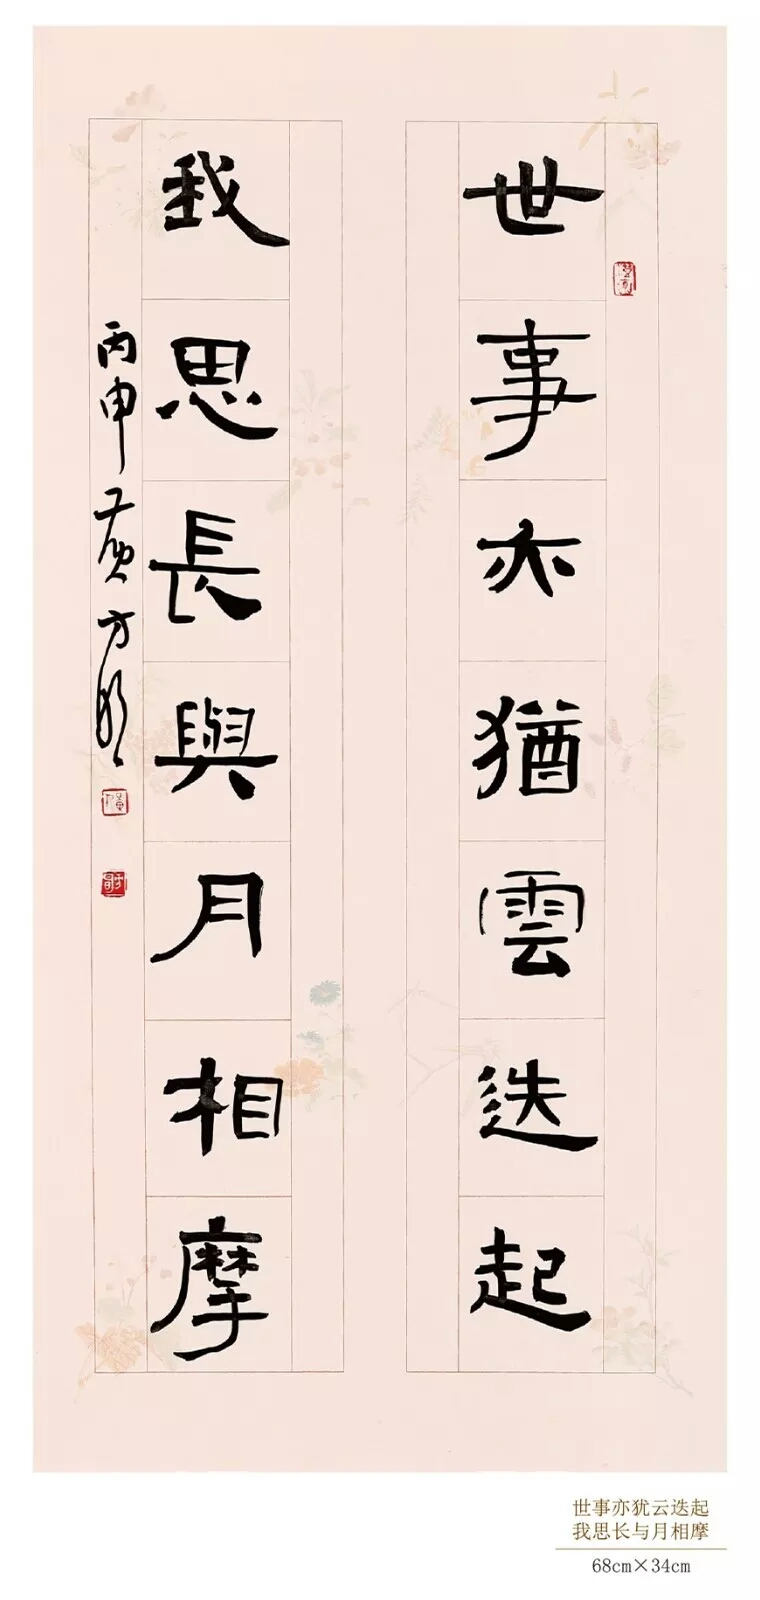 世事亦猶雲迭起
我思長與月相摩
丙申黃方明
世事亦犹云迭起
我思长与月相摩
68cm×34cm